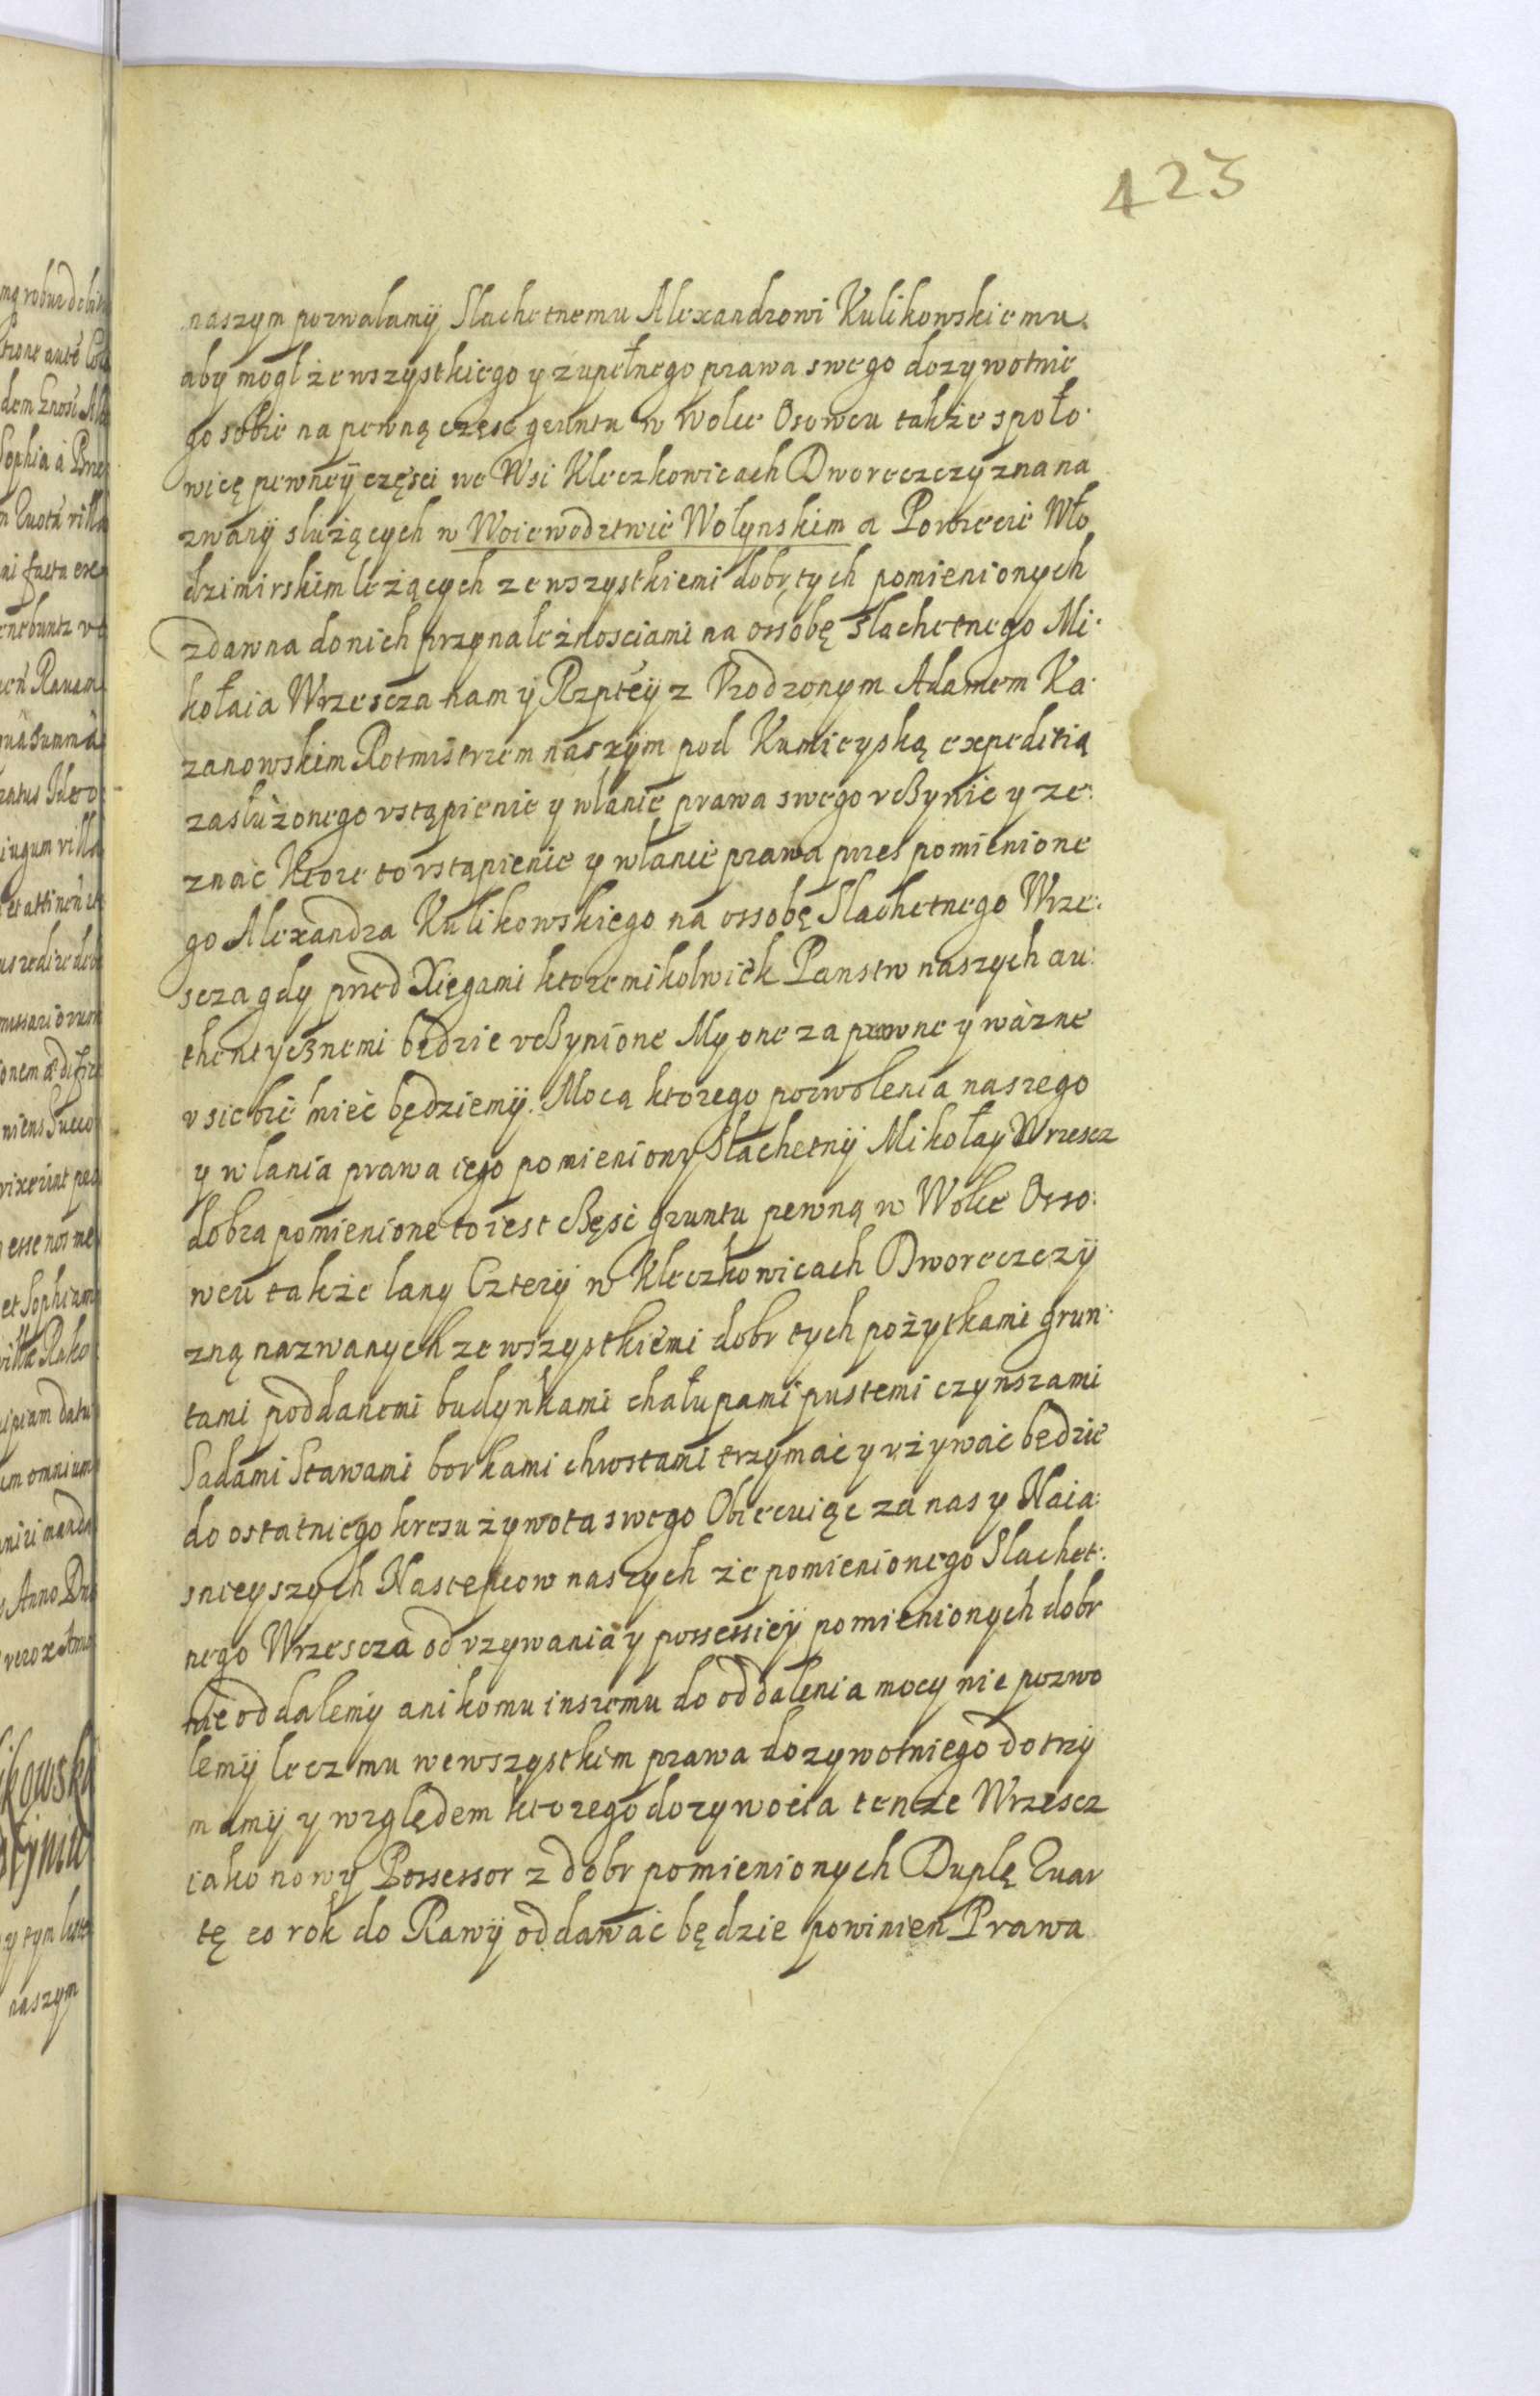 423
naszym pozwalamÿ Slachetnemu Alexandrowi Kulikowskiemu.
aby mogl ze wszystkiego y zupełnego prawa swego dozywotnie
go sobie na pewną częsc gruntu w Wolce Osowcu także z poło
wicę pewneÿ części we Wsi Kleczkowicach Dworeczczyzna na
zwanÿ służących w Woiewodztwie Wołynskim a Powiecie Wło
dzimirskim leżących ze wszystkiemi dobr tych pomienionych
zdawna do nich przynależnosciami na ossobę slachetnego Mi
kołaia Wrzescza nam ÿ Rzpteÿ z Vrodzonym Adamem Ka
zanowskim Rotmistrzem naszÿm pod Kamieyską expeditią
zasłużonego vstąpienie y wlanie prawa swego vczynic y ze:
znać Ktore to vstąpienie y wlanie prawa przes pomienione
go Alexandra Kulikowskiego na ossobę Slachetnego Wrze:
scza gdy przed Xięgami ktoremikolwiek Panstw naszych au:
thentycznemi będzie vczynione My one za pewne y ważne
v siebie mieć będziemÿ. Mocą ktorego pozwolenia naszego
y wlania prawa iego pomieniony Slachetnÿ Mikołay Wrzescz
dobra pomienione to iest część gruntu pewną w Wolce Osso:
wcu także lany Czterÿ w Kleczkowicach Dworeczczÿ
zną nazwanych ze wszystkiemi dobr tych pożytkami grun:
tami poddanemi budynkami chałupami pustemi czynszami
Sadami Stawami borkami chrostami trzymać y vżywać będzie
do ostatniego kresu żywota swego Obiecuiąc za nas y Naia:
snieyszych Nastepcow naszych że pomienionego Slachet:
nego Wrzescza od vzywania y possessieÿ pomienionych dobr
nie oddalemy ani komu inszemu do oddalenia mocy nie pozwo
lemÿ lecz mu we wszystkim prawa dozywotniego dotrzÿ
mamÿ y względem ktorego dozywocia tenze Wrzescz
iako nowy Possessor z dobr pomienionych Duplę Quar
tę co rok do Rawÿ oddawać będzie powinien Prawa